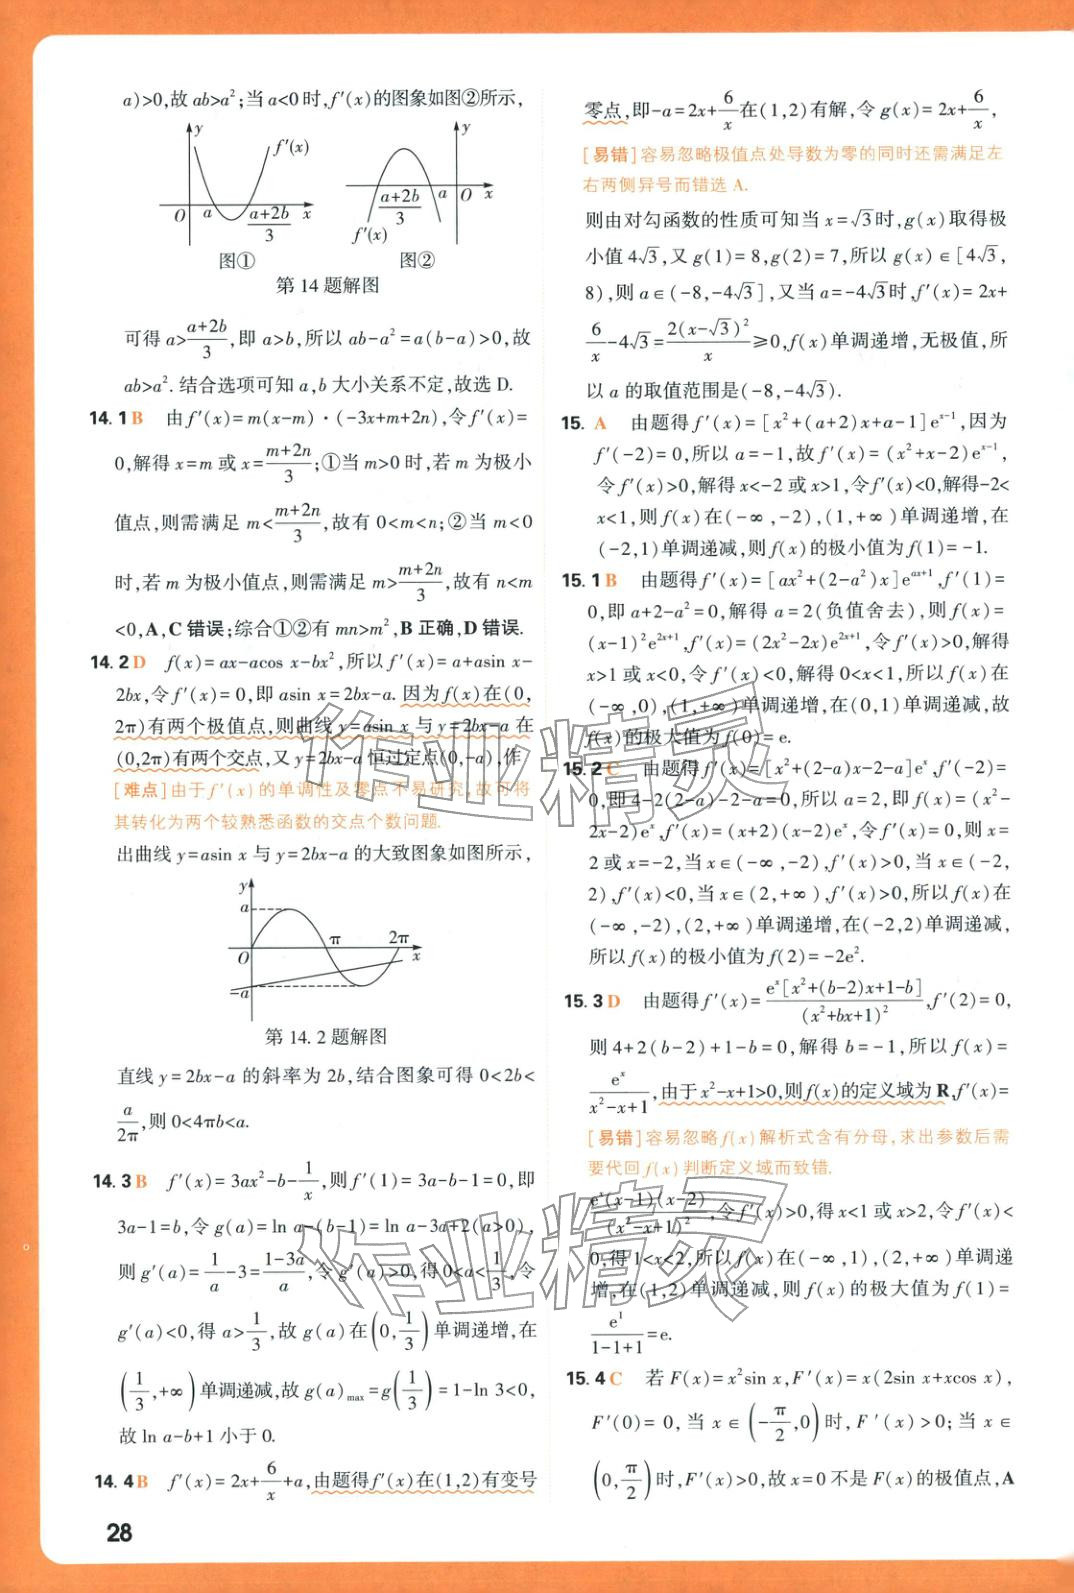 a)>0,故 ab>a²;当 a<0 时,f′(x)的图象如图②所示,
y
f′(x)
O a (a+2b)/3 x
图①
y
(a+2b)/3 a O x
f′(x)
图②
第 14 题解图
可得 a>(a+2b)/3,即 a>b,所以 ab-a²=a(b-a)>0,故
ab>a².结合选项可知 a,b 大小关系不定,故选 D.
14.1 B 由 f′(x)=m(x-m)·(-3x+m+2n),令 f′(x)=
0,解得 x=m 或 x=(m+2n)/3;①当 m>0 时,若 m 为极小
值点,则需满足 m<(m+2n)/3,故有 0<m<n;②当 m<0
时,若 m 为极小值点,则需满足 m>(m+2n)/3,故有 n<m
<0,A,C 错误;综合①②有 mn>m²,B 正确,D 错误.
14.2 D f(x)=ax-acos x-bx²,所以 f′(x)=a+asin x-
2bx,令 f′(x)=0,即 asin x=2bx-a.因为 f(x)在(0,
2π)有两个极值点,则曲线 y=asin x 与 y=2bx-a 在
(0,2π)有两个交点,又 y=2bx-a 恒过定点(0,-a),作
[难点]由于 f′(x)的单调性及零点不易研究,故可将
其转化为两个较熟悉函数的交点个数问题.
出曲线 y=asin x 与 y=2bx-a 的大致图象如图所示,
y
a
O π 2π x
-a
第 14.2 题解图
直线 y=2bx-a 的斜率为 2b,结合图象可得 0<2b<
a/(2π),则 0<4πb<a.
14.3 B f′(x)=3ax²-b-1/x,则 f′(1)=3a-b-1=0,即
3a-1=b,令 g(a)=ln a-(b-1)=ln a-3a+2(a>0),
则 g′(a)=1/a-3=(1-3a)/a,令 g′(a)>0,得 0<a<1/3,令
g′(a)<0,得 a>1/3,故 g(a)在(0,1/3)单调递增,在
(1/3,+∞)单调递减,故 g(a)max=g(1/3)=1-ln 3<0,
故 ln a-b+1 小于 0.
14.4 B f′(x)=2x+6/x+a,由题得 f′(x)在(1,2)有变号
28
零点,即-a=2x+6/x在(1,2)有解,令 g(x)=2x+6/x,
[易错]容易忽略极值点处导数为零的同时还需满足左
右两侧异号而错选 A.
则由对勾函数的性质可知当 x=√3时,g(x)取得极
小值 4√3,又 g(1)=8,g(2)=7,所以 g(x)∈[4√3,
8),则 a∈(-8,-4√3],又当 a=-4√3时,f′(x)=2x+
6/x-4√3=2(x-√3)²/x≥0,f(x)单调递增,无极值,所
以 a 的取值范围是(-8,-4√3).
15. A 由题得 f′(x)=[x²+(a+2)x+a-1]eˣ⁻¹,因为
f′(-2)=0,所以 a=-1,故 f′(x)=(x²+x-2)eˣ⁻¹,
令 f′(x)>0,解得 x<-2 或 x>1,令 f′(x)<0,解得-2<
x<1,则 f(x)在(-∞,-2),(1,+∞)单调递增,在
(-2,1)单调递减,则 f(x)的极小值为 f(1)=-1.
15.1 B 由题得 f′(x)=[ax²+(2-a²)x]e^(ax+1),f′(1)=
0,即 a+2-a²=0,解得 a=2(负值舍去),则 f(x)=
(x-1)²e^(2x+1),f′(x)=(2x²-2x)e^(2x+1),令 f′(x)>0,解得
x>1 或 x<0,令 f′(x)<0,解得 0<x<1,所以 f(x)在
(-∞,0),(1,+∞)单调递增,在(0,1)单调递减,故
f(x)的极大值为 f(0)=e.
15.2 C 由题得 f′(x)=[x²+(2-a)x-2-a]eˣ,f′(-2)=
0,即 4-2(2-a)-2-a=0,所以 a=2,即 f(x)=(x²-
2x-2)eˣ,f′(x)=(x+2)(x-2)eˣ,令 f′(x)=0,则 x=
2 或 x=-2,当 x∈(-∞,-2),f′(x)>0,当 x∈(-2,
2),f′(x)<0,当 x∈(2,+∞),f′(x)>0,所以 f(x)在
(-∞,-2),(2,+∞)单调递增,在(-2,2)单调递减,
所以 f(x)的极小值为 f(2)=-2e².
15.3 D 由题得 f′(x)=eˣ[x²+(b-2)x+1-b]/(x²+bx+1)²,f′(2)=0,
则 4+2(b-2)+1-b=0,解得 b=-1,所以 f(x)=
eˣ/(x²-x+1),由于 x²-x+1>0,则 f(x)的定义域为 R,f′(x)=
[易错]容易忽略 f(x)解析式含有分母,求出参数后需
要代回 f(x)判断定义域而致错.
eˣ(x-1)(x-2)/(x²-x+1)²,令 f′(x)>0,得 x<1 或 x>2,令 f′(x)<
0,得 1<x<2,所以 f(x)在(-∞,1),(2,+∞)单调递
增,在(1,2)单调递减,则 f(x)的极大值为 f(1)=
e¹/(1-1+1)=e.
15.4 C 若 F(x)=x²sin x,F′(x)=x(2sin x+xcos x),
F′(0)=0,当 x∈(-π/2,0)时,F′(x)>0;当 x∈
(0,π/2)时,F′(x)>0,故 x=0 不是 F(x)的极值点,A
作业精灵
作业精灵